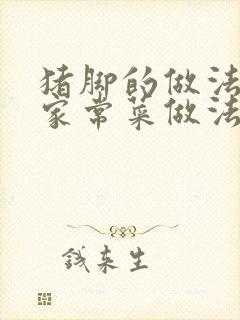 猪脚的做法
家常菜做法
钱来生